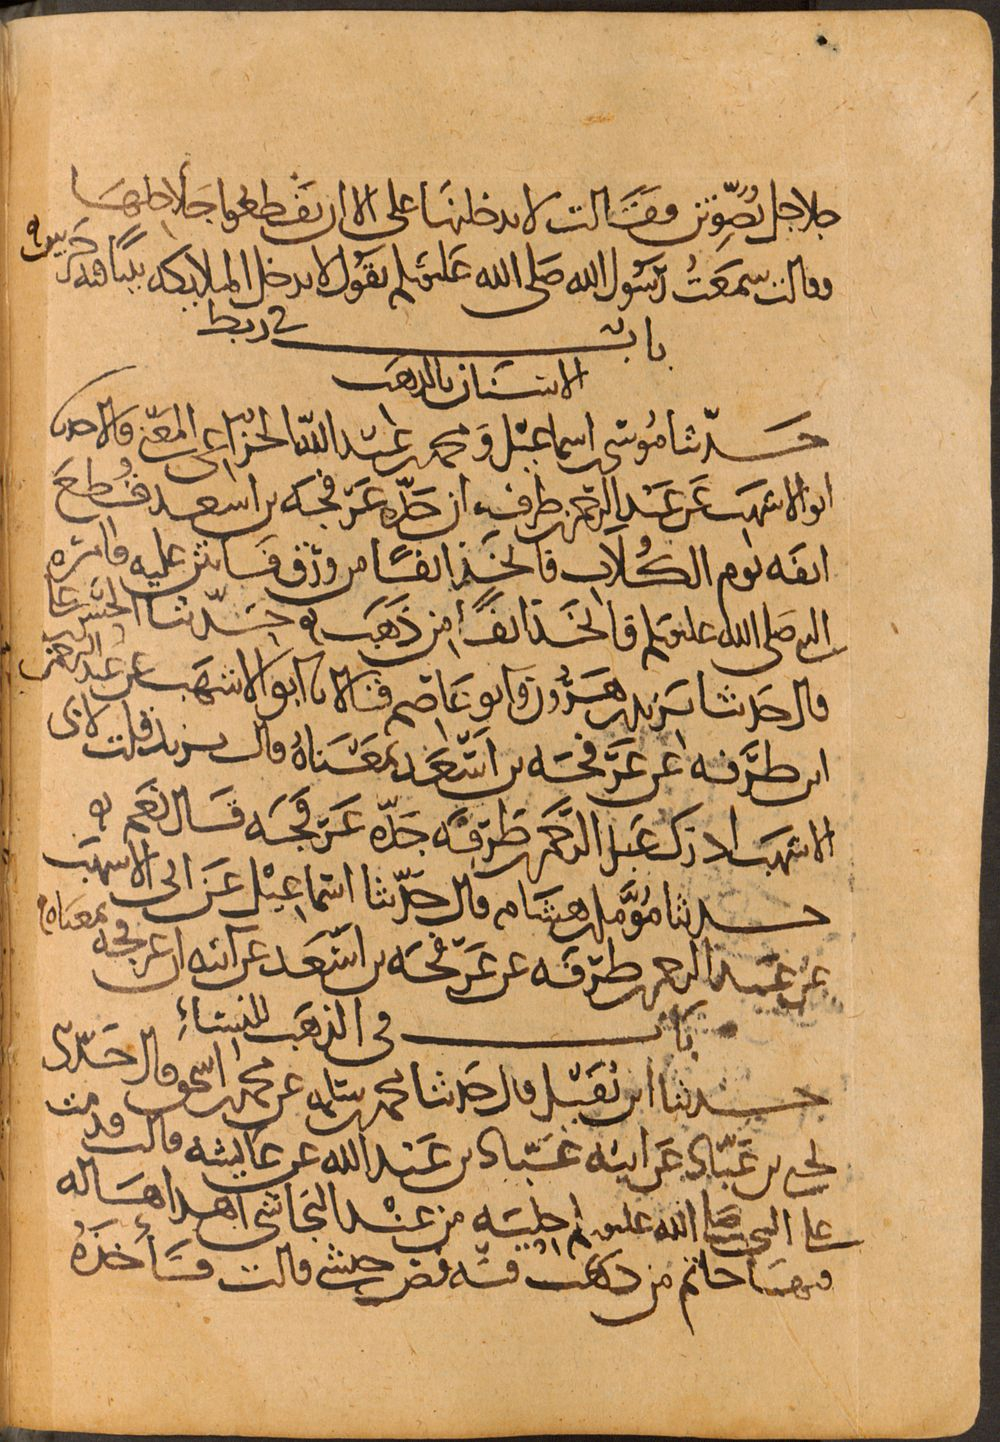 جلاجل يُصَوِّتن فقالت لا تدخلنها على الا ان تقطعوا جلاجلها
وقالت سمعتُ رسُول الله صلى الله عليه وسلم يقول لا تدخل الملايكه بيتًا فيه جرس
باب في ربط
الاسنان بالذهب
حدّثنا موسى بن اسماعيل ومحمد بن عبد الله الخزاعى المعنى قالا حدثنا
ابو الاشهب عن عبد الرحمن بن طرفه ان جَدَّه عَرفجه بن اسعد قُطعَ
انفه يوم الكُلاب فاتخذ انفًا من ورق فانتن عليه فامره
النبي صلى الله عليه وسلم فاتخذ انفًا من ذَهَب حدّثنا الحسن بن علي
قال حدثنا يزيد بن هرون وابو عاصم قالا نا ابو الاشهب عن عبد الرحمن
ابن طرَفه عن عَرفجه بن اسعَد بمعناهُ قال يزيد قلت لابي
الاشهب ادرك عبد الرحمن بن طرفه جدّه عَرفجَه قال نَعَم
حدثنا مُؤمل بن هشام قال حدّثنا اسماعيل عن ابى الاشهب
عن عبد الرحمن بن طرَفَه عن عَرفجَه بن اسعَد عن ابيه ان عرفجه بمعناه
باب في الذهَب للنساءِ
حدثنا ابن نُفَيل قال حَدثنا محمد بن سلمه عن محمد بن اسحق قال حَدّثنى
يحيى بن عَبّاد عَن ابيه عَبّاد بن عَبد الله عن عايشه قالت قدمت
على النبي صلى الله عليه وسلم حِليَه من عند النجَاشى اهداها له
فيهَا خاتم من ذَهَب فيه فص حبشى قالت فأخذهُ